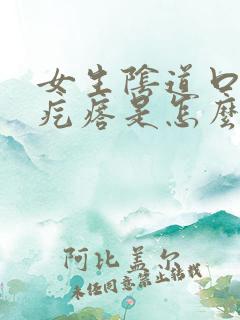 女生陰道口
疙瘩是怎麼
阿比盖尔
未经同意禁止转载